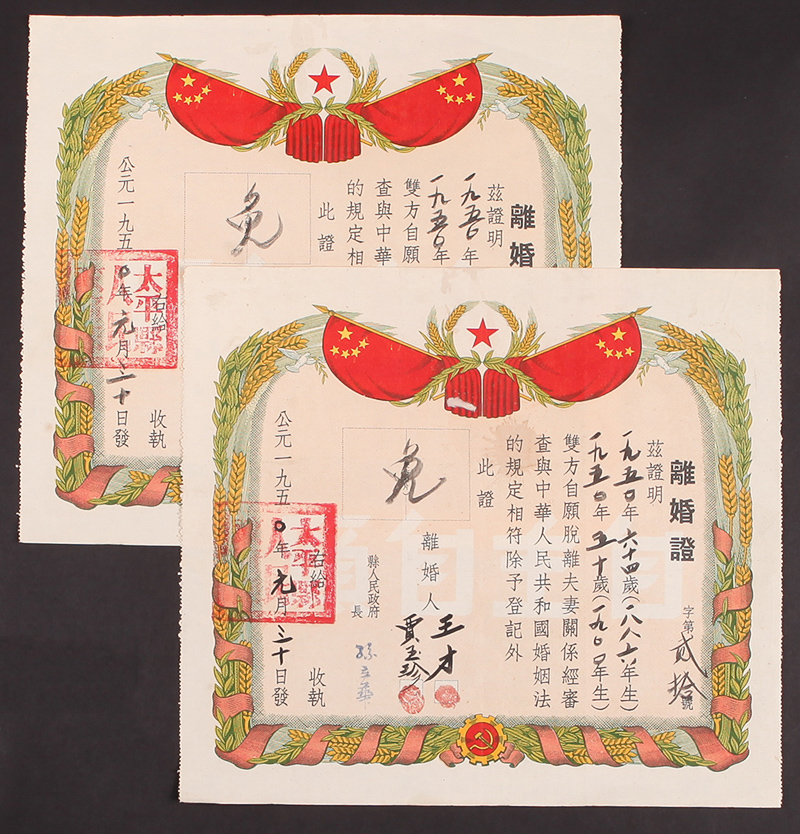 離婚
茲證明
一九五〇年
一九五〇年
雙方自願
查與中華
的規定相
此證
免
右給
收執
公元一九五〇年元月三十日發
太平縣
離婚證
字第貳拾號
茲證明
一九五〇年六十四歲(一八八六年生)
一九五〇年五十歲(一九〇〇年生)
雙方自願脫離夫妻關係經審
查與中華人民共和國婚姻法
的規定相符除予登記外
此證
免
離婚人 王才
賈玉珍
縣人民政府
長
右給
收執
公元一九五〇年元月三十日發
太平縣